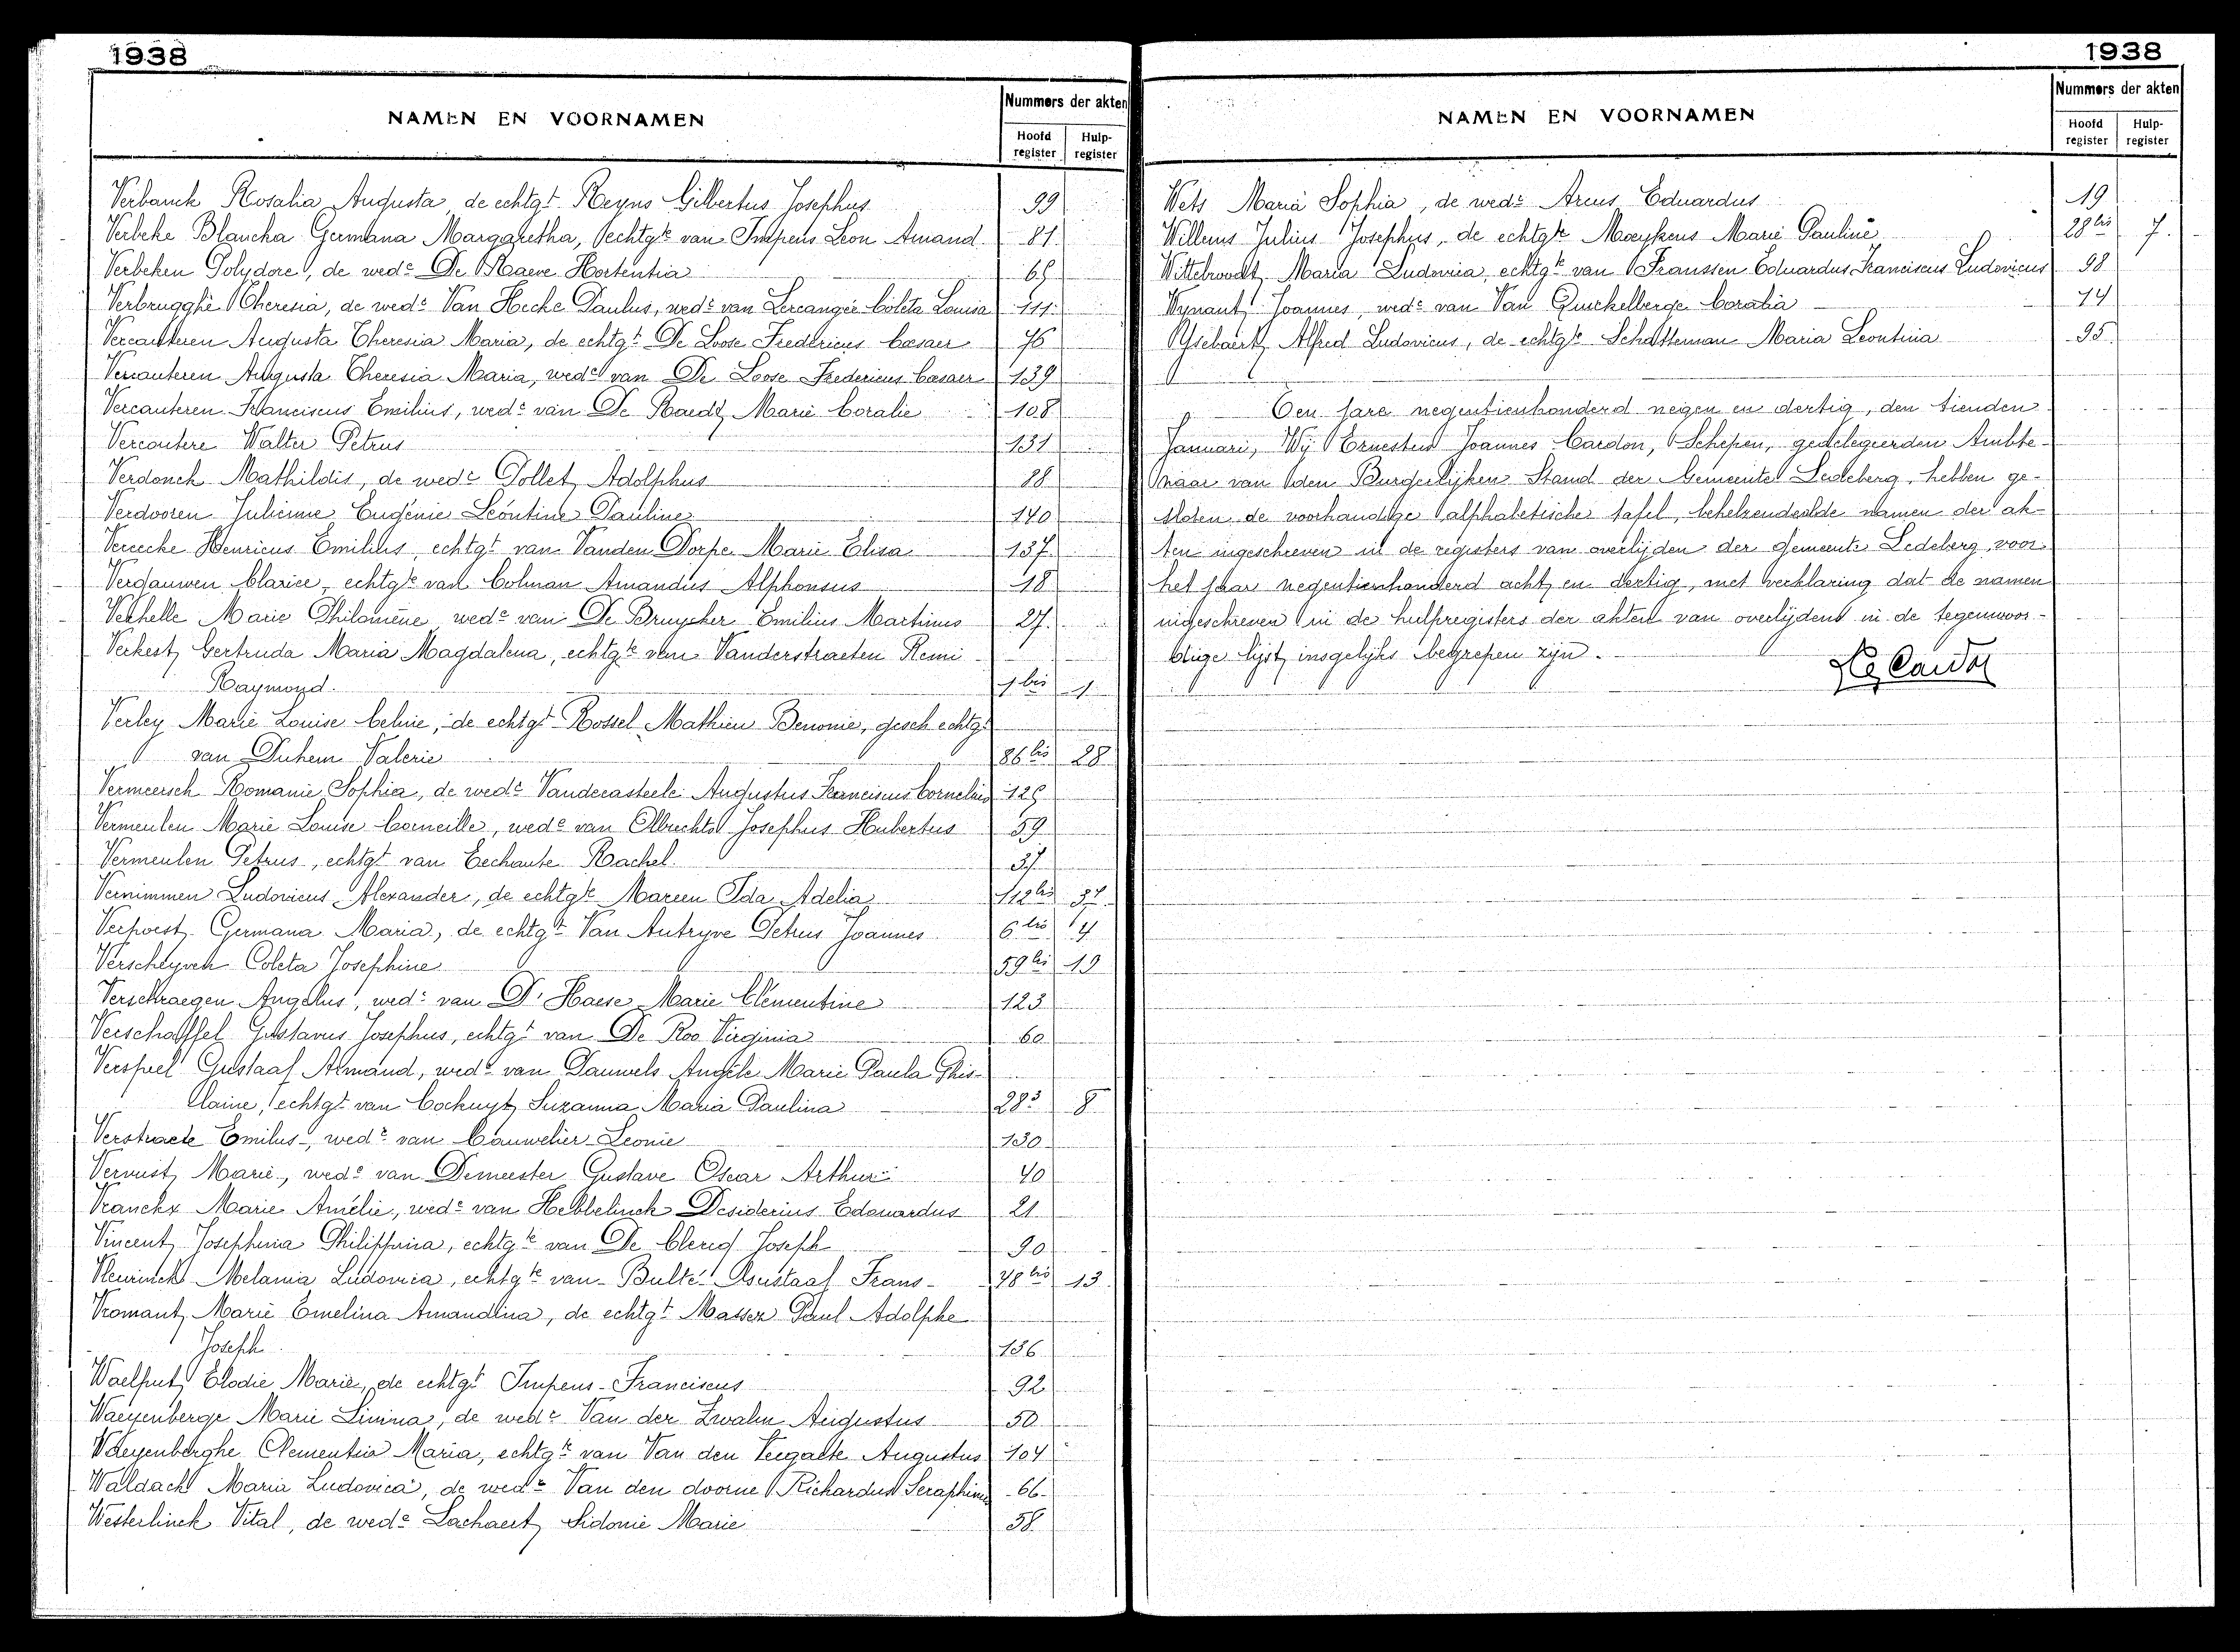 1938
NAMEN EN VOORNAMEN
Nummers der akten
Hoofd register
Hulp- register
Verbauck Rosalia Augusta de echtgt Reyns Gilbertus Josephus 99
Verbeke Blancha Germana Margaretha, echtgte van Impens Leon Amand 81
Verbeken Polydore, de wede De Maere Hortentia 65
Verbrugghe Theresia, de wede Van Hecke Paulus, wede van Coleta Louisa 111
Vercauteren Augusta Theresia Maria, de echtgt De Loose Fredericus Caesaer 76
Vercauteren Augusta Theresia Maria, wede van De Loose Fredericus Caesaer 139
Vercauteren Franciscus Emilius, wede van De Raedt Marie Coralie 108
Vercoutere Walter Petrus 131
Verdonck Mathildis, de wede Pollet Adolphus 88
Verdooren Julienne Eugénie Léontine Pauline 140
Vereecke Henricus Emilius, echtgt van Vanden Dorpe Marie Elisa 137
Vergauwen Clarice, echtgte van Colman Amandus Alphonsus 18
Verhelle Marie Philomène wede van De Bruycker Emilius Martinus 27.
Verkest Gertruda Maria Magdalena, echtgte van Vanderstraeten Remi
Raymond. 1 bis 1
Verley Marie Louise Celnie, de echtgt Rossel Mathieu Benonie, gesch echtgt
van Duhem Valerie 86 bis 28
Vermeersch Romanie Sophia, de wede Vandecasteele Augustus Franciscus Cornelius 125
Vermeulen Marie Louise Corneille, wede van Olbrechts Josephus Hubertus 59
Vermeulen Petrus, echtgt van Eechaute Rachel. 37
Vernimmen Ludovicus Alexander, de echtgte Mareen Ida Adelia 112 bis 37
Verpoest Germana Maria, de echtgt Van Autryve Petrus Joannes 6 bis 4
Verschlyck Coleta Josephine 59 bis 19
Verschraegen Angelus, wede van D'Haese Marie Clementine 123
Verschaffel Gustavus Josephus, echtgt van De Roo Virginia 60
Verspeel Gustaaf Armand, wede van Pauwels Angèle Marie Paula Ghis-
laine, echtgt van Cockuyt Suzanna Maria Paulina 28 3 8
Verstraete Emilus, wede van Cauwelier Leonie 130
Vervust Marie, wede van Demeester Gustave Oscar Arthur 40
Vranckx Marie Amélie, wede van Hebbelinck Desiderius Edouardus 21
Vincent Josephina Philippina, echtgte van De Clercq Joseph 90
Melania Ludovica, echtgte van Bulté Gustaaf Frans 48 bis 13
Vromant Marie Emelina Amandina, de echtgt Massez Paul Adolphe
Joseph 136
Waelput Elodie Marie, de echtgt Impens Franciscus 92
Waeyenberge Marie Sinina, de wede Van der Zwalm Augustus 50
Waeyenberghe Clementia Maria, echtgte van Van den Veegaete Augustus 104
Waldack Maria Ludovica, de wede Van den doorne Richardus Seraphinus 66
Westerlinck Vital, de wede Lachaert Sidonie Marie 58
1938
NAMEN EN VOORNAMEN
Nummers der akten
Hoofd register
Hulp- register
Wets Maria Sophia, de wede Arens Eduardus 19
Willems Julius Josephus, de echtgte Maeykens Marie Pauline 28 bis 7.
Wittebroodt Maria Ludovica, echtgte van Franssen Eduardus Franciscus Ludovicus 98
Wynant Joannes, wede van Van Quickelberge Coralia 74
Ysebaert Alfred Ludovicus, de echtgte Schatteman Maria Leontina 95
Ten jare negentienhonderd negen en dertig, den tienden
Januari, Wij Ernestus Joannes Cardon, Schepen, gedelegeerden Ambte-
naar van den Burgerlijken Stand der Gemeente Ledeberg, hebben ge-
sloten de voorhandige alphabetische tafel, behelzende de namen der ak-
ten ingeschreven in de registers van overlijden der gemeente Ledeberg, voor
het jaar negentienhonderd acht en dertig, met verklaring dat de namen
ingeschreven in de hulpregisters der akten van overlijdens in de tegenwoor-
dige lijst insgelijks begrepen zijn.
Cardon